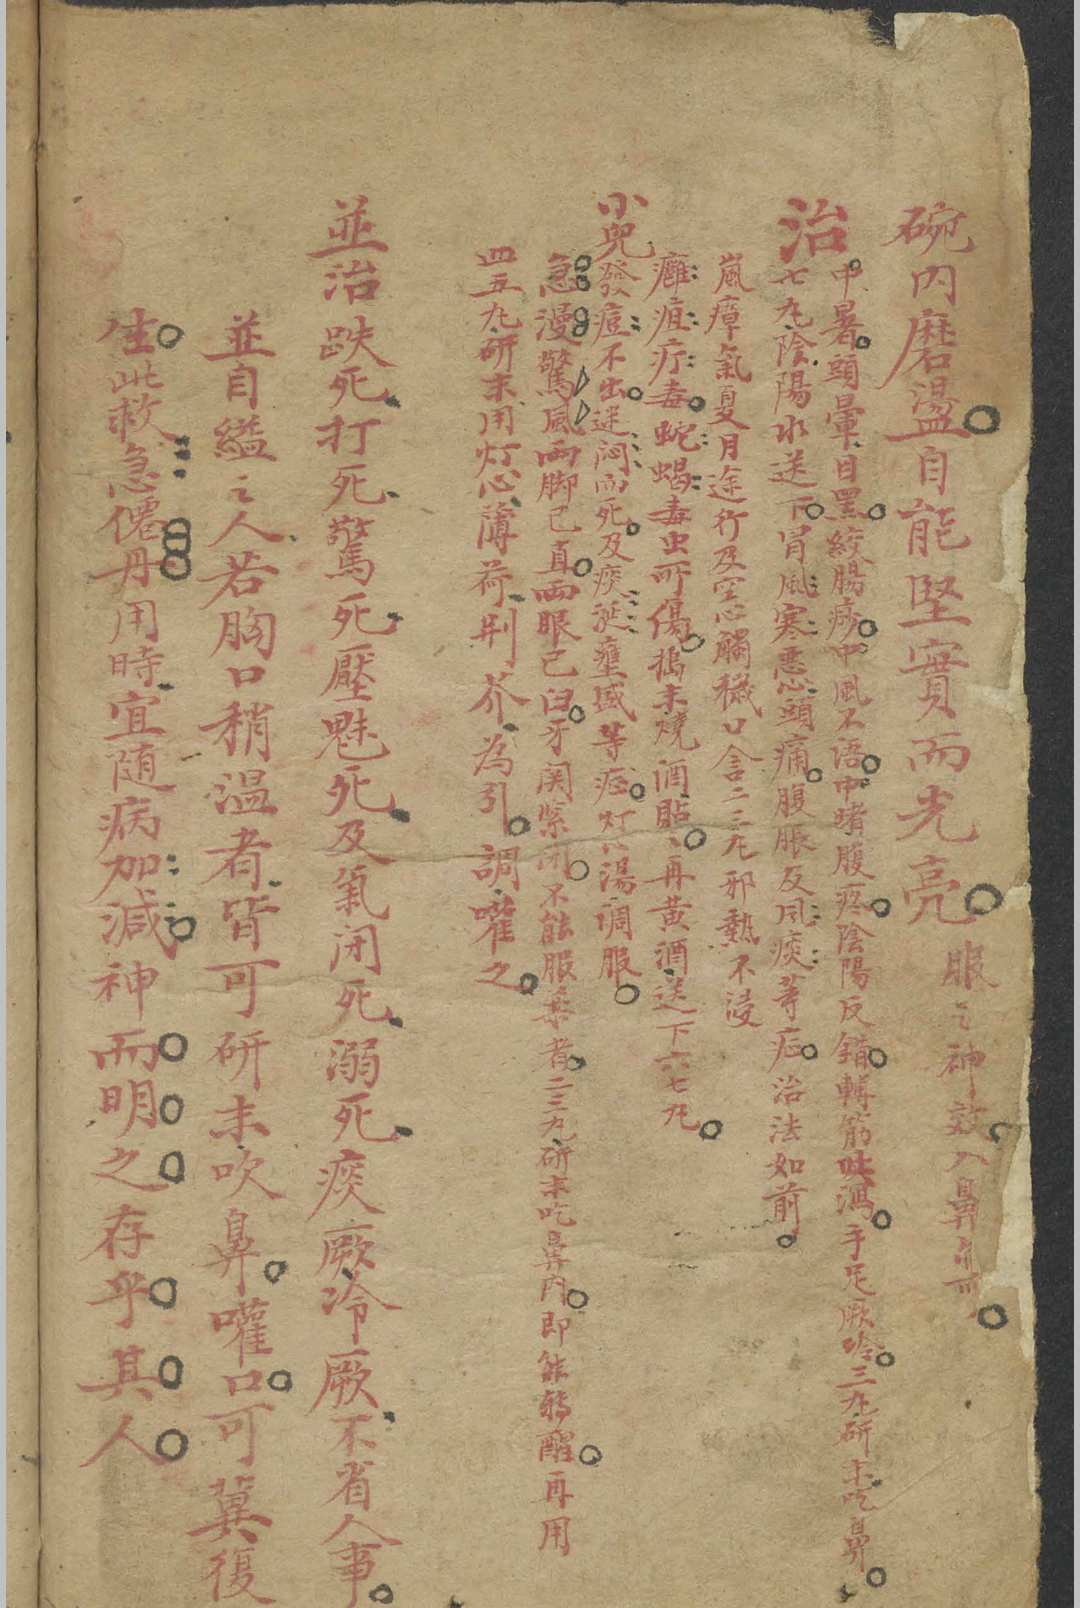 碗內磨盪自能堅實而光亮服之神效入鼻亦可
治
中暑頭暈目黑絞腸痧中風不語中暑腹疼陰陽反錯轉筋吐瀉手足厥冷三九研末吃鼻
七九陰陽水送下胃風寒惡心頭痛腹脹及風痰等症治法如前
嵐瘴氣夏月途行及空心觸穢口含二三九邪熱不浸
癰疽疔毒蛇蝎毒虫所傷搗末燒酒貼、再黃酒送下六七九
小兒發痘不出迷悶而死及痰涎壅盛等症灯心湯調服
急漫驚風兩脚已直兩眼已白牙関緊閉不能服藥者二三九研末吃鼻內即能轉醒再用
四五九研末用灯心薄荷荆芥為引調嚾之
並治跌死打死驚死壓魅死及氣闭死溺死痰厥冷厥不省人事
並自縊之人若胸口稍溫者皆可研末吹鼻嚾口可冀復
生此救急僊丹用時宜随病加減神而明之存乎其人